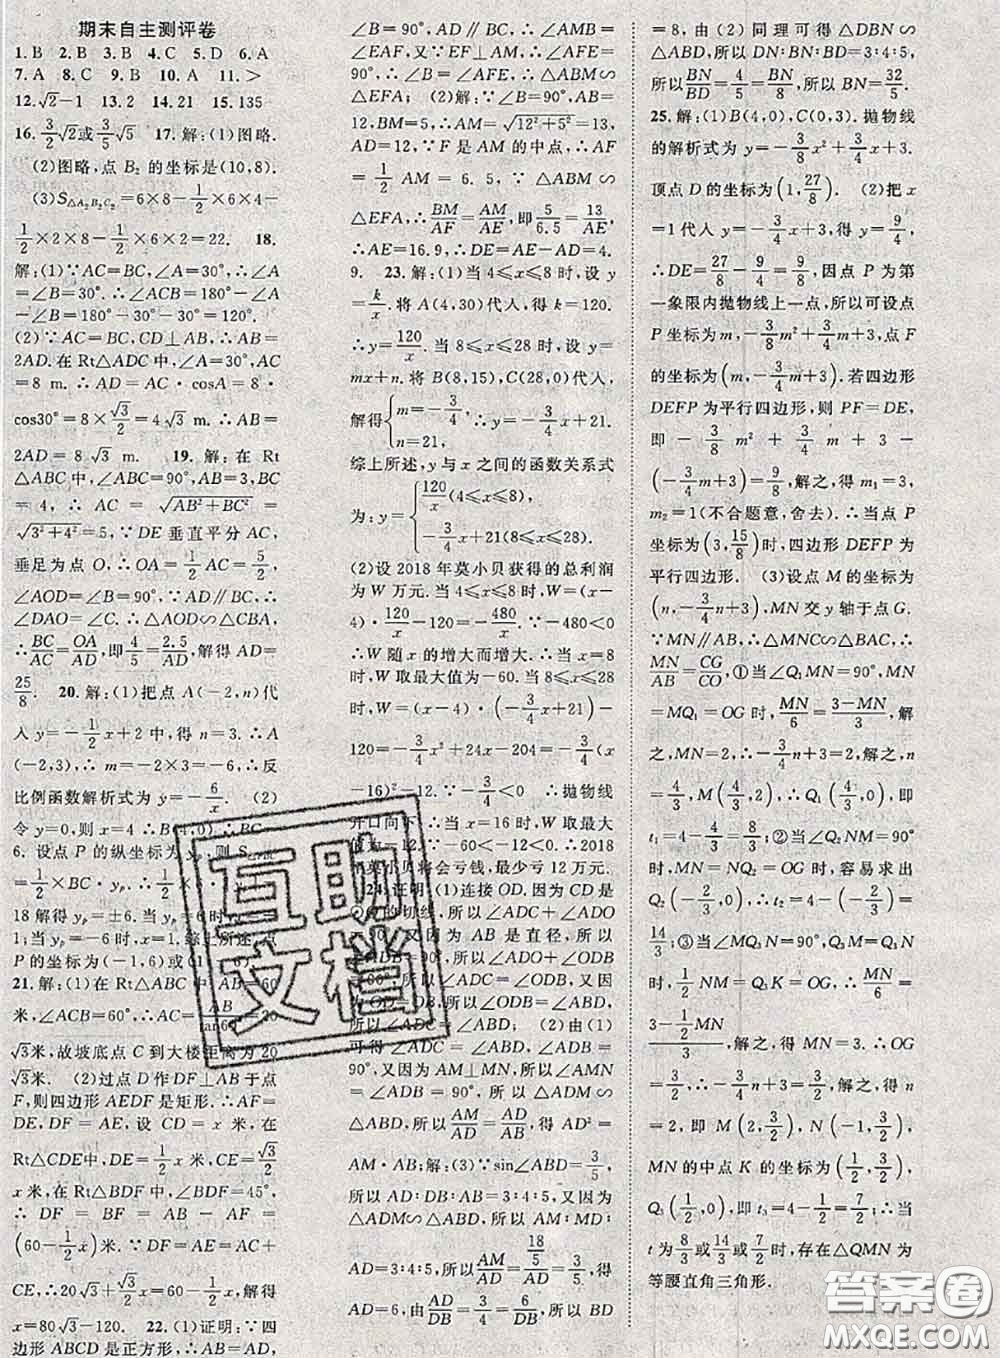 期末自主测评卷
1. B 2. B 3. B 4. C 5. D 6. A
7. A 8. C 9. B 10. A 11. >
12. √2-1 13. 2 14. 21 15. 135
16. 3/2√2或3/5√5 17. 解:(1)图略.
(2)图略,点 B₂ 的坐标是(10,8).
(3)S△A₂B₂C₂=6×8-1/2×6×4-
1/2×2×8-1/2×6×2=22. 18.
解:(1)∵AC=BC,∠A=30°,∴∠A
=∠B=30°.∴∠ACB=180°-∠A
-∠B=180°-30°-30°=120°.
(2)∵AC=BC,CD⊥AB,∴AB=
2AD.在Rt△ADC中,∠A=30°,AC
=8 m.∴AD=AC·cosA=8·
cos30°=8×√3/2=4√3.∴AB=
2AD=8√3 m. 19. 解:在 Rt
△ABC中,∠ABC=90°,AB=3,BC
=4,∴AC=√(AB²+BC²)=
√(3²+4²)=5,∵DE垂直平分AC,
垂足为点O,∴OA=1/2AC=5/2,
∠AOD=∠B=90°,∵AD∥BC,∴
∠DAO=∠C.∴△AOD∽△CBA,
∴BC/AC=OA/AD,即4/5=2.5/AD,解得AD=
25/8. 20. 解:(1)把点A(-2,n)代
入y=-1/2x+2中,得n=3.∴A
(-2,3),∴m=-2×3=-6,∴反
比例函数解析式为y=-6/x. (2)
令y=0,则x=4
6. 设点P的纵坐标为
=1/2×BC·yₚ
18解得yₚ=±6.当yₚ=6
1;当yₚ=-6时,
P的坐标为(-1,6)或
21. 解:(1)在Rt△ABC中
米,∠ACB=60°,∴AC=
√3米,故坡底点C到大楼距离为20
√3米. (2)过点D作DF⊥AB于点
F,则四边形AEDF是矩形.∴AF=
DE,DF=AE,设CD=x米,在
Rt△CDE中,DE=1/2x米,CE=√3/2
x米,在Rt△BDF中,∠BDF=45°,
∴DF=BF=AB-AF=
(60-1/2x)米.∵DF=AE=AC+
CE,∴20√3+√3/2x=60-1/2x,解得
x=80√3-120. 22. (1)证明:∵四
边形ABCD是正方形,∴AB=
BC,∠B=90°,AD∥BC.∴∠AMB=
∠EAF,又∵EF⊥AM,∴∠AFE=
90°,∴∠B=∠AFE,∴△ABM∽
△EFA; (2)解:∵∠B=90°,AB=
12,BM=5,∴AM=√(12²+5²)=13,
AD=12,∵F是AM的中点,∴AF
=1/2AM=6.5,∵△ABM∽
△EFA,∴BM/AF=AM/AE,即5/6.5=13/AE,
∴AE=16.9,∴DE=AE-AD=4.
9. 23. 解:(1)当4≤x≤8时,设y=
k/x.将A(4,30)代人,得k=120.
∴y=120/x.当8≤x≤28时,设y=
mx+n.将B(8,15),C(28,0)代人,
解得{m=-3/4, n=21, ∴y=-3/4x+21.
综上所述,y与x之间的函数关系式
为:y={120/x(4≤x≤8), -3/4x+21(8≤x≤28).
(2)设2018年莫小贝获得的总利润
为W万元.当4≤x≤8时,W=(x-
4)·120/x-120=-480/x.∵-480<0
∴W随x的增大而增大.∴当x=8
时,W取最大值为-60.当8≤x≤28
时,W=(x-4)·(-3/4x+21)-
120=-3/4x²+24x-204=-3/4(x
-16)²-12.∵-3/4<0,∴抛物线
开口向下.∴当x=16时,W取最大
-12.∵-60<-12<0.∴2018
莫小贝将会亏钱,最少亏12万元.
24. 证明:(1)连接OD.因为CD是
的切线,所以∠ADC+∠ADO
因为AB是直径,所以
所以∠ADO+
所以∠ADC=∠ODB,
所以∠ODB=∠OBD,所
ADC=∠ABD; (2)由(1)
可得∠ADC=∠ABD,因为∠AMN
=∠ADB=90°,所以△ADM∽
△ABD,所以AM/AD=AD/AB,所以AD²=
AM·AB;解:(3)∵sin∠ABD=3/5,
所以AD:DB:AB=3:4:5,又因为
△ADM∽△ABD,所以AM:DM:
AD=3:4:5,所以AM/AD=(18/5)/AD=3/5,得
AD=6,由AD/DB=6/DB=3/4,所以BD
=8,由(2)同理可得△DBN∽
△ABD,所以DN:BN:BD=3:4:5,
所以BN/BD=4/5=BN/8,所以BN=32/5.
25. 解:(1)B(4,0),C(0,3).抛物线
的解析式为y=-3/8x²+3/4x+3.
顶点D的坐标为(1,27/8). (2)把x
=1代人y=-3/4x+3,可得y=9/4
∴DE=27/8-9/4=9/8,因点P为第
一象限内抛物线上一点,所以可设点
P坐标为(m,-3/8m²+3/4m+3),点F
的坐标为(m,-3/4m+3).若四边形
DEFP为平行四边形,则PF=DE,
即-3/8m²+3/4m+3-
(-3/4m+3)=9/8,解之,得m₁=3,
m₂=1(不合题意,舍去).∴当点P
坐标为(3,15/8)时,四边形DEFP为
平行四边形. (3)设点M的坐标为
(n,-3/4n+3),MN交y轴于点G.
∵MN∥AB,∴△MNC∽△BAC,∴
MN/AB=CG/CO,①当∠Q₁MN=90°,MN
=MQ₁=OG时,MN/6=(3-MN)/3,解
之,MN=2.∴-3/4n+3=2,解之,n
=4/3,M(4/3,2),∴Q₁(4/3,0),即
t₁=4-4/3=8/3;②当∠Q₂NM=90°
时,MN=NQ₂=OG时,容易求出
Q₂(-2/3,0),∴t₂=4-(-2/3)=
14/3;③当∠MQ₃N=90°,
时,1/2MN=NQ₃K=OG,∴MN/6=
(3-1/2MN)/3,解之,得MN=3.∴OG
=3/2,∴-3/4n+3=3/2,解之,得n
=2,即M(2,3/2),N(-1,3/2),
MN的中点K的坐标为(1/2,3/2),
Q₃(1/2,0),即t₃=4-1/2=7/2;∴当
t为8/3或14/3或7/2时,存在△QMN为
等腰直角三角形.
互助
文档
答案圈
MXQE.COM